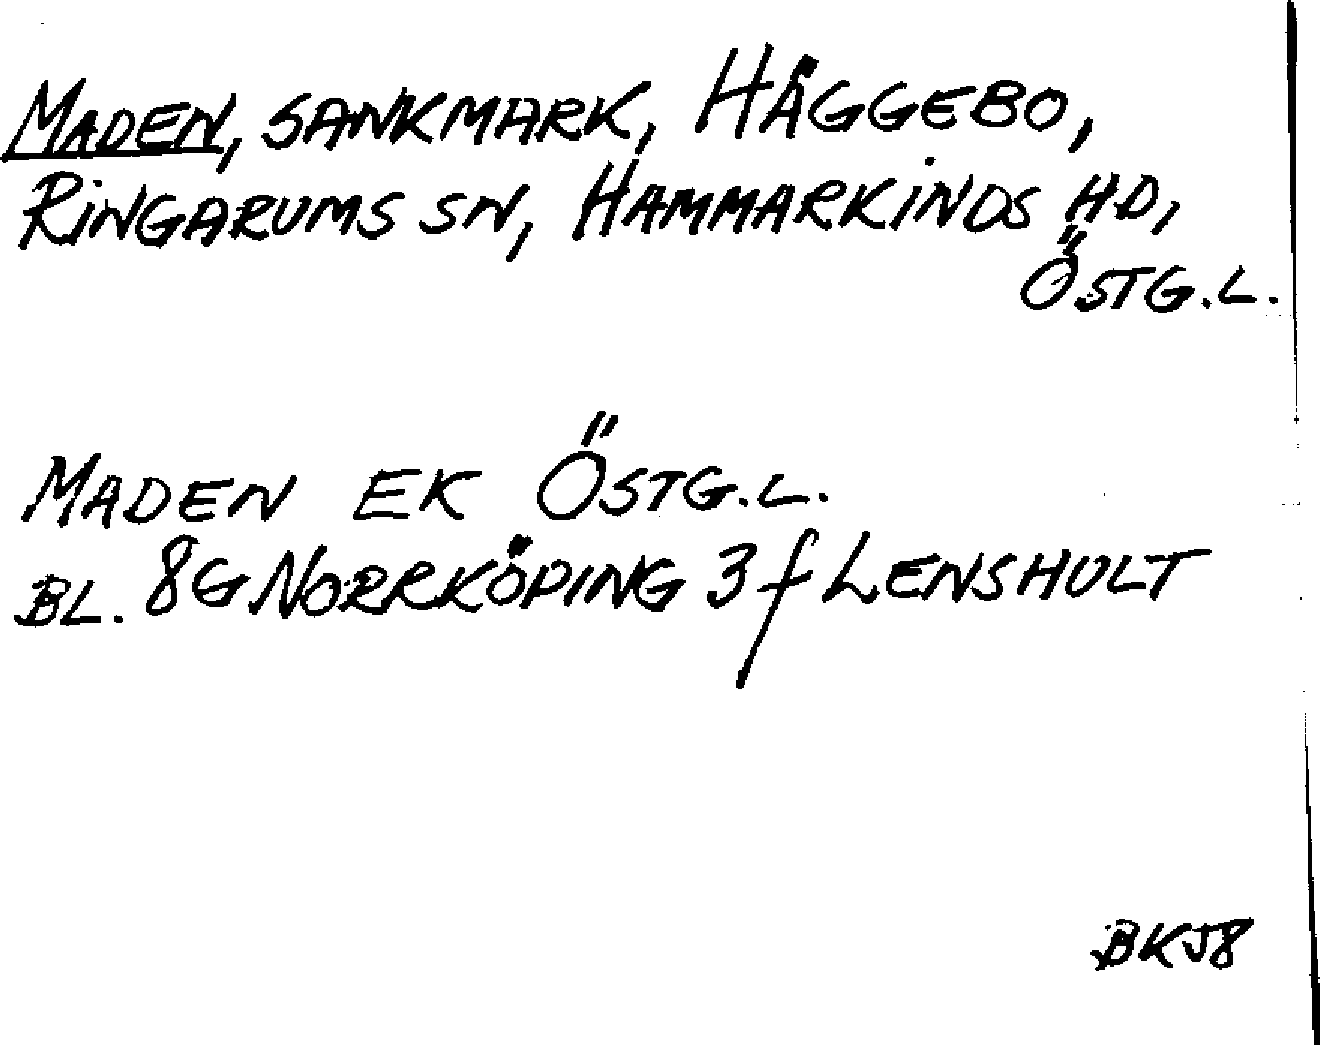 MADEN, SANKMARK, HÄGGEBO,
RINGARUMS SN, HAMMARKINDS HD,
ÖSTG.L.
MADEN EK ÖSTG.L.
BL. 8G NORRKÖPING 3f LENSHULT
BKJ8